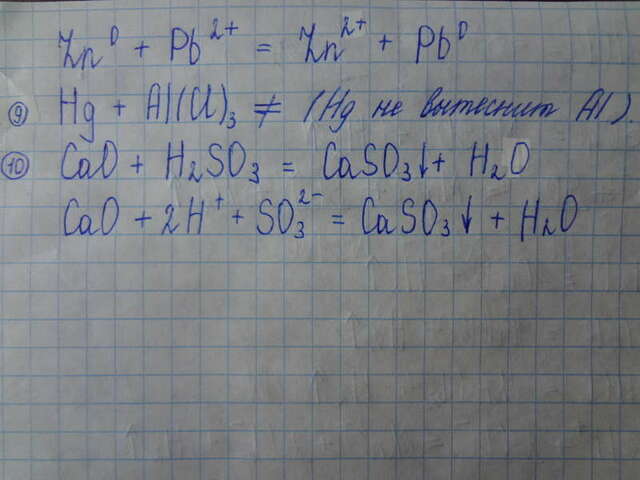 Zn⁰ + Pb²⁺ = Zn²⁺ + Pb⁰
⑨ Hg + Al(Cl)₃ ≠ (Hg не вытеснит Al).
⑩ CaO + H₂SO₃ = CaSO₃↓ + H₂O
CaO + 2H⁺ + SO₃²⁻ = CaSO₃↓ + H₂O